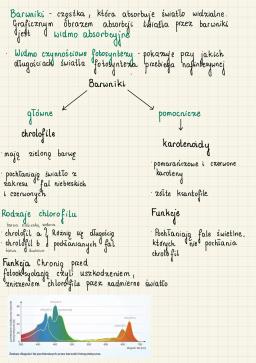 Barwniki - cząstka, która absorbuje światło widzialne.
Graficznym obrazem absorbcji światła przez barwniki
jest widmo absorbcyjne
Widmo czynnościowe fotosyntezy - pokazuje przy jakich
długościach światła fotosynteza przebiega najintensywniej
Barwniki
główne
pomocnicze
chrolofile
karotenoidy
- mają zieloną barwę
- pomarańczowe i czerwone
karoteny
- pochłaniają światło z
zakresu fal niebieskich
i czerwonych
- żółte ksantofile
Rodzaje chlorofilu
Funkcje
chlorofil a
chlorofil b
różnią się długością
pochłanianych fal
- Pochłaniają fale świetlne,
których nie pochłania
chlorofil
Funkcja Chronią przed
fotooksydacją czyli uszkodzeniem,
zniszczeniem chlorofilu przez nadmierne światło